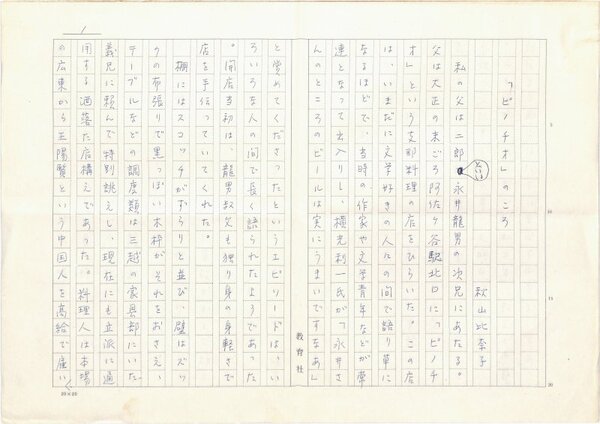 1
「ピノチオ」のころ
秋山比奈子
私の父は二郎といい永井龍男の次兄にあたる。
父は大正の末ごろ阿佐ヶ谷駅北口に「ピノチ
オ」という支那料理の店をひらいた。この店
は、いまだに文学好きの人々の間で語り草に
なるほどで、当時の作家や文学青年などが常
連となって出入りし、横光利一氏が「永井さ
んのところのビールは実にうまいですなあ」
と賞めてくださったというエピソードは、い
ろいろな人の間で長く語られたようであった
。開店当初は、龍男叔父も独り身の身軽さで
店を手伝っていてくれた。
棚にはスコッチがずらりと並び、壁はズッ
クの布張りで黒っぽい木枠がそれをおさえ、
テーブルなどの調度類は三越の家具部にいた
義兄に頼んで特別誂えし、現在にも立派に通
用する洒落た店構えであった。料理人は本場
の広東から王陽賢という中国人を高給で雇い
教育社
20×20
5
10
15
20